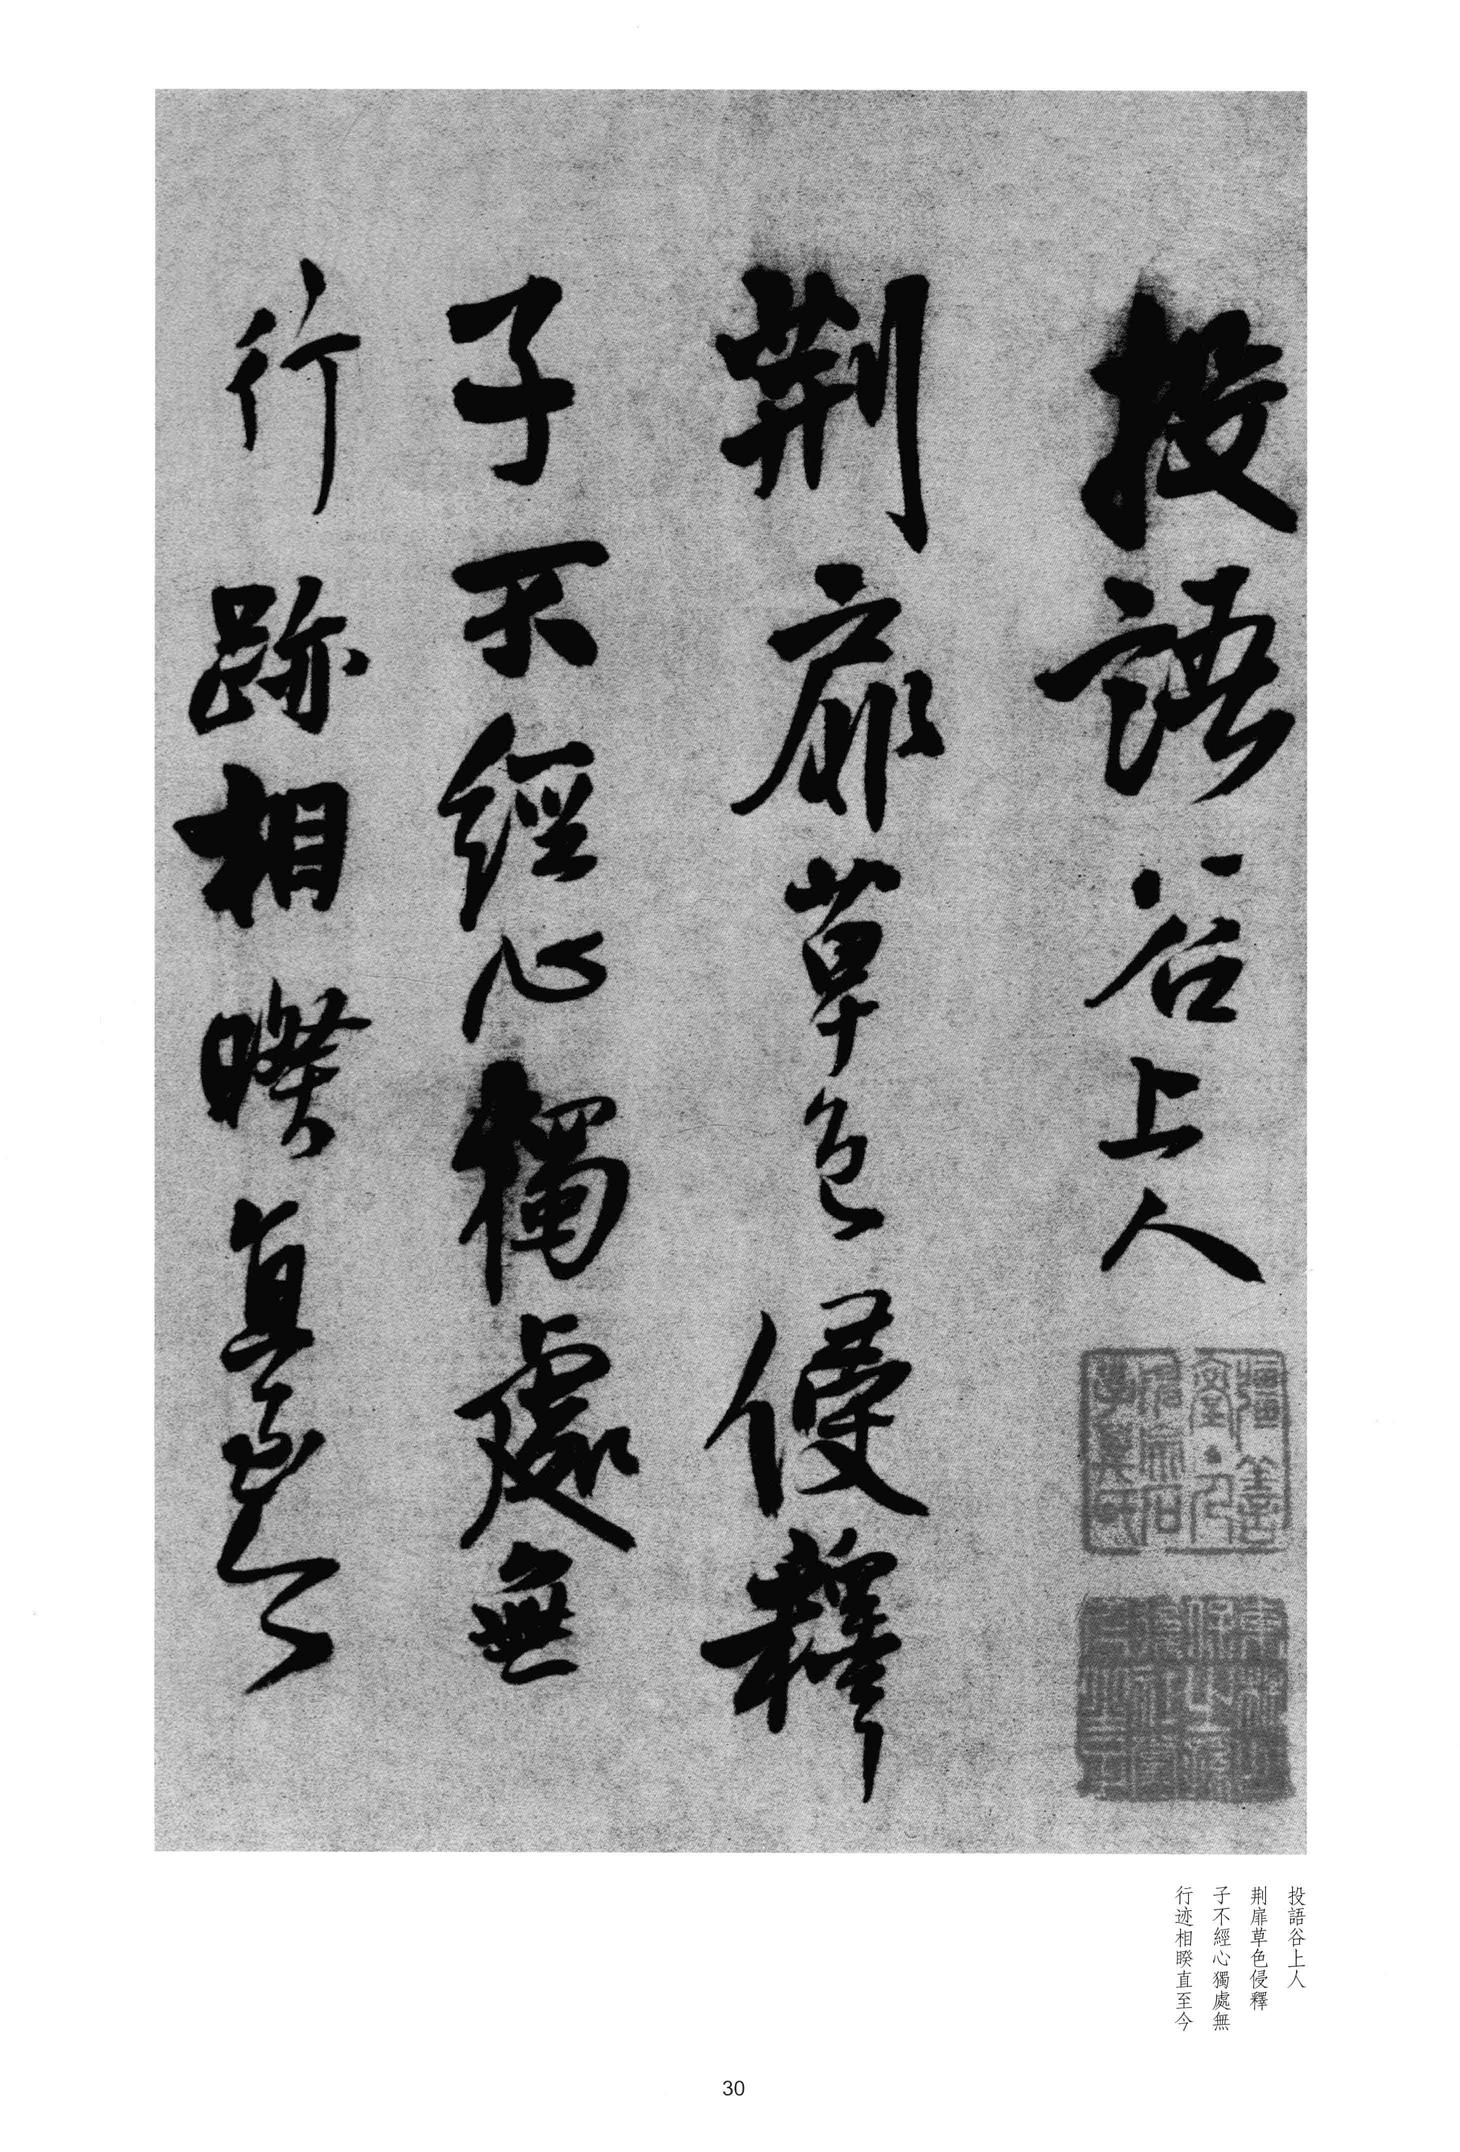 投語谷上人
荆扉草色侵釋
子不經心獨處無
行跡相睽直至今
投語谷上人
荆扉草色侵釋
子不經心獨處無
行迹相睽直至今
30